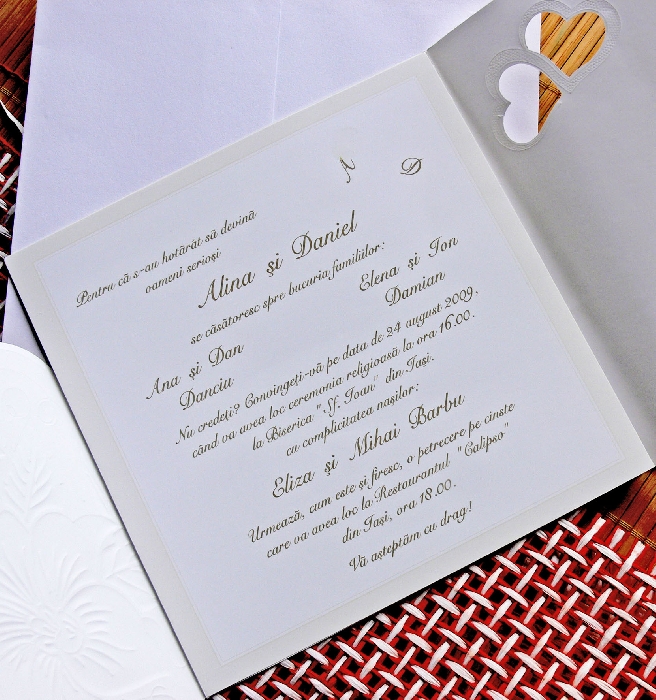 A D
Pentru că s-au hotărât să devină
oameni serioși
Alina și Daniel
se căsătoresc spre bucuria familiilor:
Ana și Dan
Danciu
Elena și Ion
Damian
Nu credeți? Convingeți-vă pe data de 24 august 2009,
când va avea loc ceremonia religioasă la ora 16.00.
la Biserica "Sf. Ioan" din Iași.
cu complicitatea nașilor:
Eliza și Mihai Barbu
Urmează, cum este și firesc, o petrecere pe cinste
care va avea loc la Restaurantul "Calipso"
din Iași, ora 18.00.
Vă așteptăm cu drag!